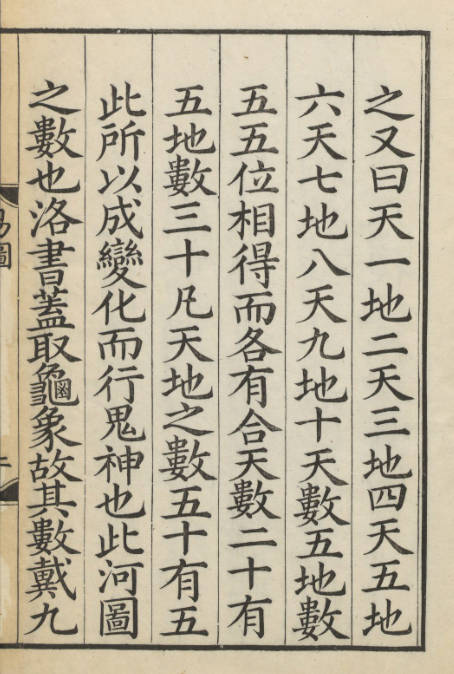 之又曰天一地二天三地四天五地
六天七地八天九地十天數五地數
五五位相得而各有合天數二十有
五地數三十凡天地之數五十有五
此所以成變化而行鬼神也此河圖
之數也洛書蓋取龜象故其數戴九